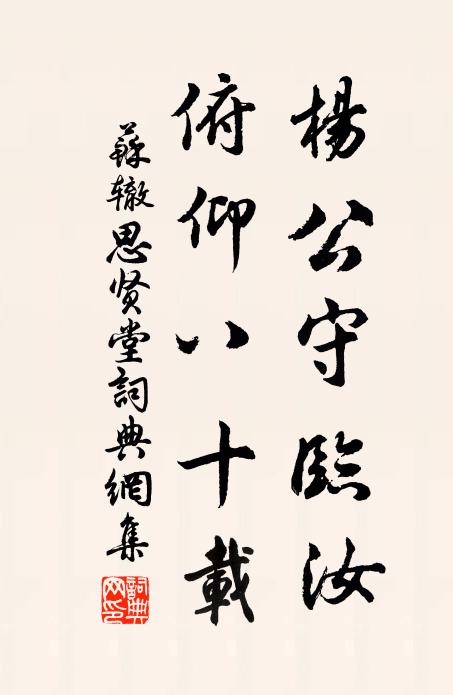 楊公守臨汝
俯仰八十載
蘇辙思贤堂詞典網集
詞典網印